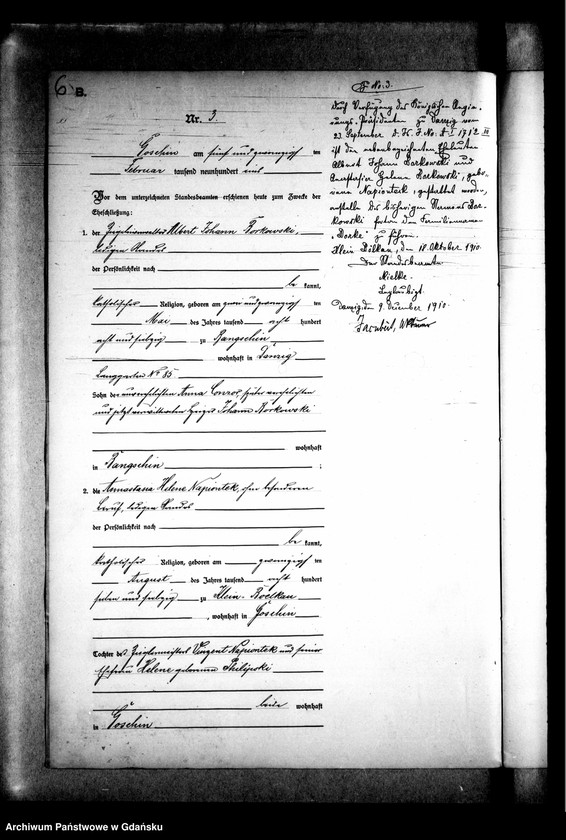 6
B.
Nr. 3.
Goschin am fünf und zwanzigsten
Februar tausend neunhundert eins
Vor dem unterzeichneten Standesbeamten erschienen heute zum Zwecke der
Eheschließung:
1. der Albert Johann Borkowski,
ledigen Standes
der Persönlichkeit nach
be kannt,
katholischer Religion, geboren am zwei und zwanzigsten
Mai des Jahres tausend acht hundert
acht und siebzig zu Bangschin
wohnhaft in Danzig
Langgarten No 85
Sohn der unverehelichten Anna Conrad, später verehelichten
und jetzt verwittweten Johann Borkowski
wohnhaft
in Bangschin ;
2. die Anastasia Helene Napiontek, ohne besonderen
Beruf, ledigen Standes
der Persönlichkeit nach
be kannt,
katholischer Religion, geboren am zwanzigsten
August des Jahres tausend acht hundert
sieben und siebzig zu Klein-Bölkau
, wohnhaft in Goschin
Tochter des Ziegelmeisters Vinzent Napiontek und seiner
Ehefrau Helene geborenen Philipski
beide wohnhaft
in Goschin
No. 3.
Durch Verfügung des Königlichen Regie-
rungs-Präsidenten zu Danzig vom
23. September d. Js. J. No:
ist den nebenbezeichneten Eheleuten
Albert Johann Borkowski und
Anastasia Helene Borkowski, gebo-
rene Napiontek, gestattet worden,
anstelle des bisherigen Namens Bor-
kowski fortan den Familiennamen
"Borke" zu führen.
Klein Bölkau, den 18. Oktober 1910.
Der Standesbeamte
Mielke.
Beglaubigt.
Danzig, den 9. Dezember 1910.
Aktuar
Archiwum Państwowe w Gdańsku